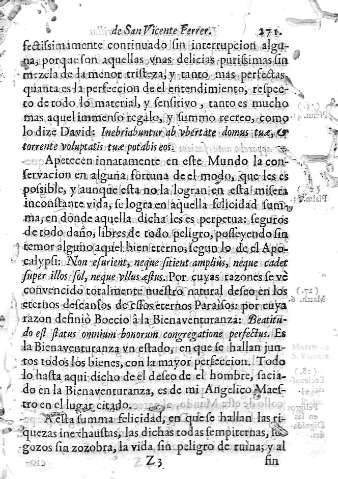 de San Vicente Ferrer. 271.
fectissimamente continuado sin interrupcion algu-
na, porque son aquellas vnas delicias purissimas sin
mezcla de la menor tristeza, y tanto mas perfectas,
quanta es la perfeccion de el entendimiento, respec-
to de todo lo material, y sensitivo, tanto es mucho
mas aquel immenso regalo, y summo recreo, como
lo dize David: Inebriabuntur ab vbertate domus tuæ, &
torrente voluptatis tuæ potabis eos.
Apetecen innatamente en este Mundo la con-
servacion en alguna fortuna de el modo, que les es
possible, y aunque esta no la logran en esta misera
inconstante vida, se logra en aquella felicidad sum-
ma, en donde aquella dicha les es perpetua: seguros
de todo daño, libres de todo peligro, posseyendo sin
temor alguno aquel bien eterno, segun lo de el Apo-
calypsi: Non esurient, neque sitient amplius, neque cadet
super illos sol, neque vllus æstus. Por cuyas razones se vè
convencido totalmente nuestro natural deseo en los
eternos descansos de essos eternos Paraisos: por cuya
razon definiò Boecio à la Bienaventuranza: Beatitu-
do est status omnium bonorum congregatione perfectus. Es
la Bienaventuranza vn estado, en que se hallan jun-
tos todos los bienes, con la mayor perfeccion. Todo
lo hasta aqui dicho de el deseo de el hombre, sacia-
do en la Bienaventuranza, es de mi Angelico Maes-
tro en el lugar citado.
A esta summa felicidad, en que se hallan las ri-
quezas inexhaustas, las dichas todas sempiternas, los
gozos sin zozobra, la vida sin peligro de ruina; y al
Z 3 fin